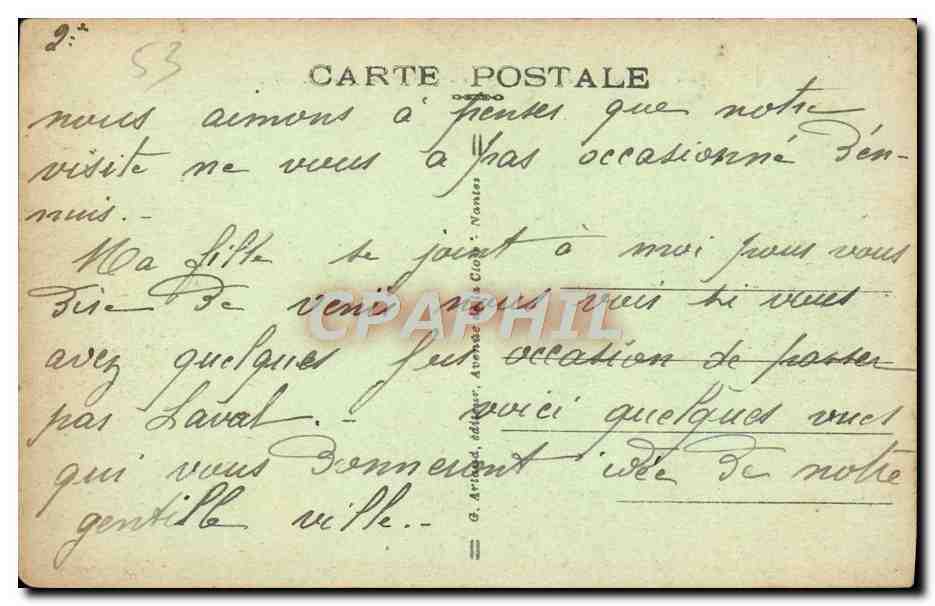 2e
53
CARTE POSTALE
nous aimons à penser que notre
visite ne vous a pas occasionné d'én-
nuis.-
Ma fille se joint à moi pour vous
dire de venir nous voir si vous
avez quelques fois occasion de passer
par Laval.- voici quelques vues
qui vous donneront idée de notre
gentille ville.-
G. Artaud, éditeur, Avenue Clo Nantes
CPAPHIL